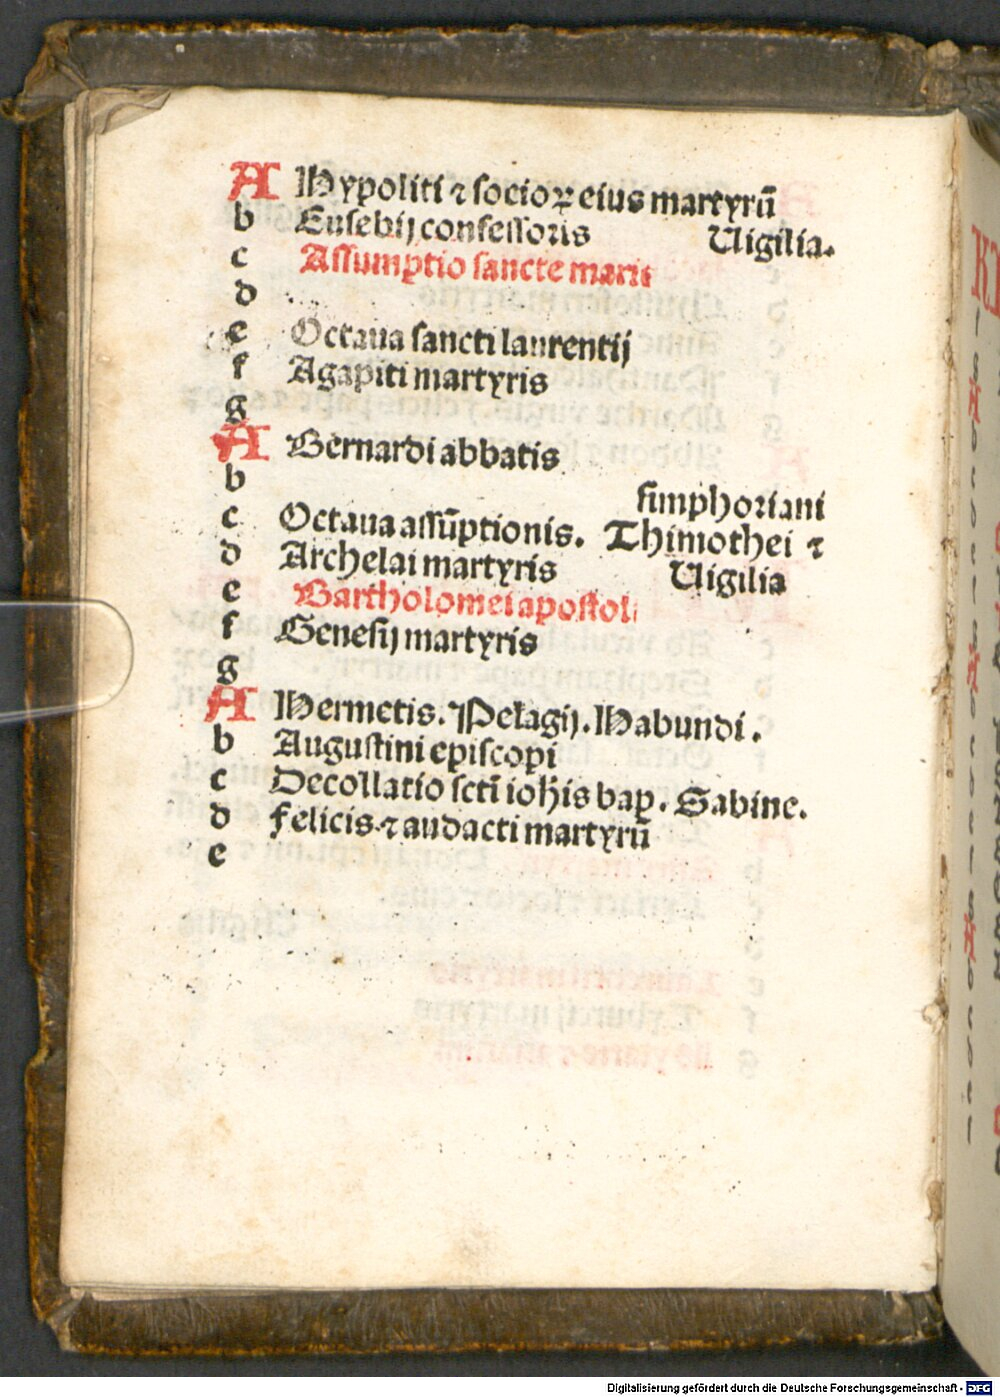 A Hypoliti ⁊ socioꝝ eius martyrū
b Eusebij confessoris Uigilia.
c Assumptio sancte marie
d
e Octaua sancti laurentij
f Agapiti martyris
g
A Bernardi abbatis
b
simphoriani
c Octaua assūptionis. Thimothei ⁊
d Archelai martyris Uigilia
e Bartholomei apostoli
f Genesij martyris
g
A Hermetis. Pelagij. Habundi.
b Augustini episcopi
c Decollatio scti iohis bap. Sabine.
d felicis ⁊ audacti martyrū
e
Digitalisierung gefördert durch die Deutsche Forschungsgemeinschaft - DFG